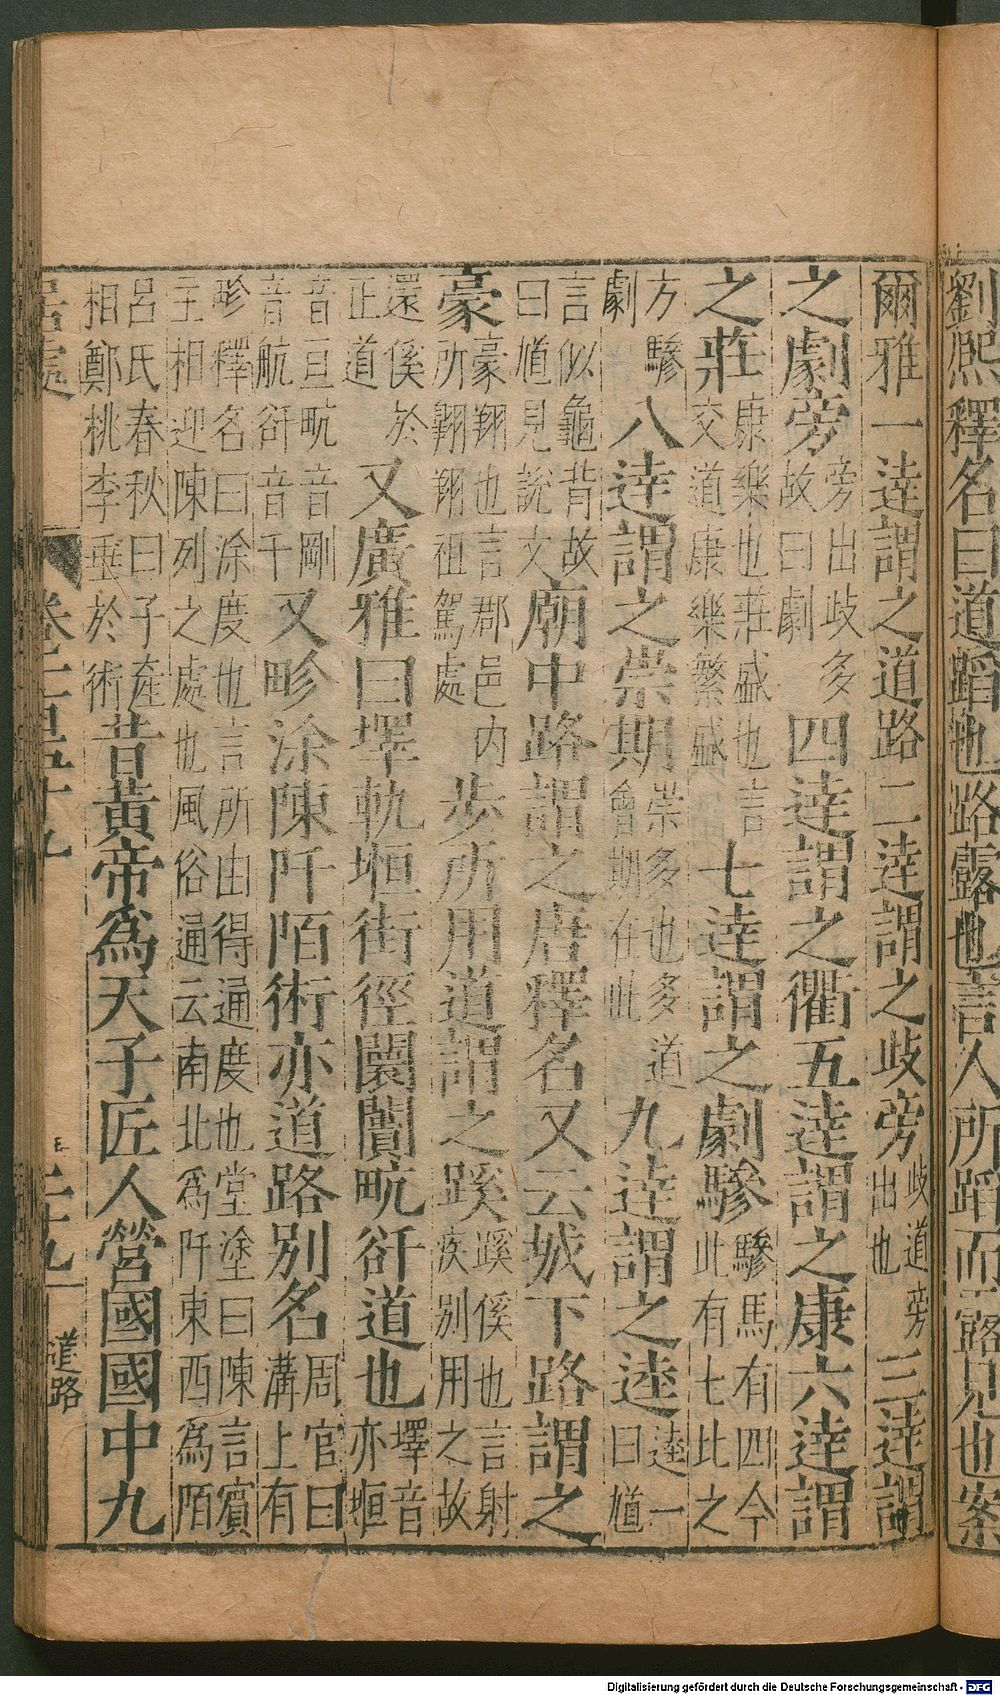 劉熙釋名曰道蹈也路露也言人所蹈而露見也案
爾雅一達謂之道路二達謂之歧旁歧道旁出也三達謂
之劇旁旁出歧多故曰劇四達謂之衢五達謂之康六達謂
之莊康樂也莊盛也言交道康樂繁盛七達謂之劇驂驂馬有四今此有七比之
方驂劇八達謂之崇期崇多也多道會期在此九達謂之逵逵一曰馗
言似龜背故曰馗見說文廟中路謂之唐釋名又云城下路謂之
豪豪翔也言郡邑內所翱翔祖駕處步所用道謂之蹊蹊傒也言射疾別用之故
還傒於正道又廣雅曰墿軌垣街徑闤闠畂衍道也墿音亦垣
音亘畂音剛音航衍音千又畛涂陳阡陌術亦道路別名周官曰溝上有
畛釋名曰涂度也言所由得通度也堂塗曰陳言賓主相迎陳列之處也風俗通云南北為阡東西為陌
呂氏春秋曰子產相鄭桃李垂於術昔黃帝為天子匠人營國國中九
居處
卷一百五十九
二十九
道路
Digitalisierung gefördert durch die Deutsche Forschungsgemeinschaft - DFG